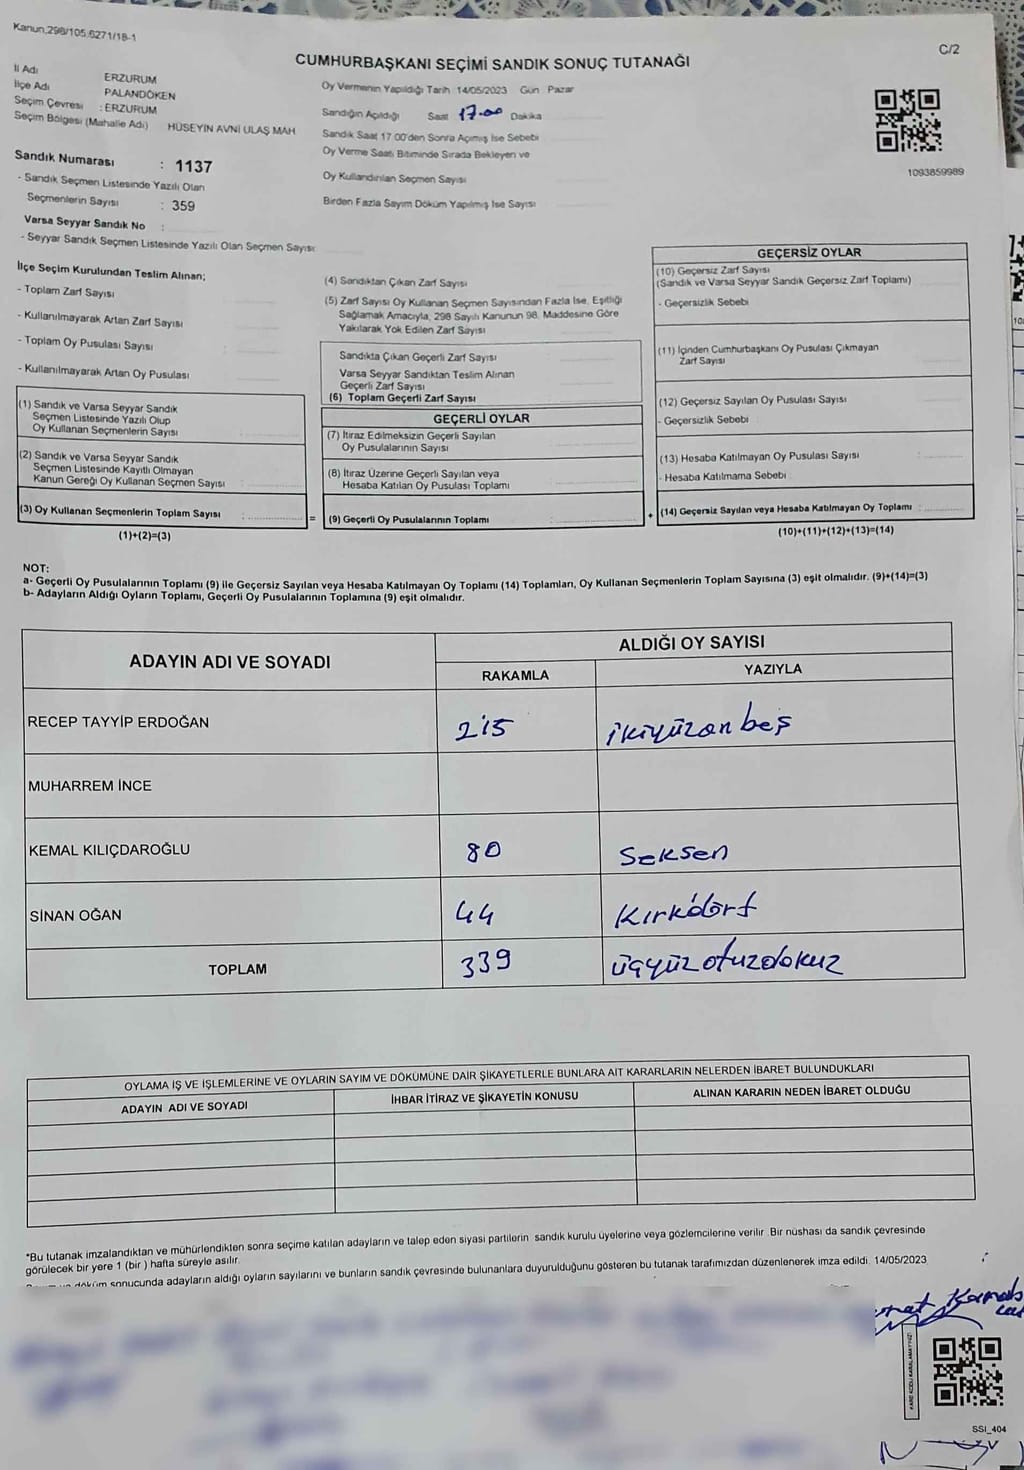 Kanun,298/105,6271/18-1
C/2
CUMHURBAŞKANI SEÇİMİ SANDIK SONUÇ TUTANAĞI
İl Adı ERZURUM
İlçe Adı PALANDÖKEN
Seçim Çevresi : ERZURUM
Seçim Bölgesi (Mahalle Adı) HÜSEYİN AVNİ ULAŞ MAH
Sandık Numarası : 1137
- Sandık Seçmen Listesinde Yazılı Olan
Seçmenlerin Sayısı : 359
Varsa Seyyar Sandık No :
- Seyyar Sandık Seçmen Listesinde Yazılı Olan Seçmen Sayısı:
Oy Vermenin Yapıldığı Tarih 14/05/2023 Gün Pazar
Sandığın Açıldığı Saat 17.00 Dakika
Sandık Saat 17.00'den Sonra Açımış İse Sebebi
Oy Verme Saati Bitiminde Sırada Bekleyen ve
Oy Kullandırılan Seçmen Sayısı
Birden Fazla Sayım Döküm Yapılmış İse Sayısı
1093859989
İlçe Seçim Kurulundan Teslim Alınan;
- Toplam Zarf Sayısı
- Kullanılmayarak Artan Zarf Sayısı
- Toplam Oy Pusulası Sayısı
- Kullanılmayarak Artan Oy Pusulası
(1) Sandık ve Varsa Seyyar Sandık
Seçmen Listesinde Yazılı Olup
Oy Kullanan Seçmenlerin Sayısı
(2) Sandık ve Varsa Seyyar Sandık
Seçmen Listesinde Kayıtlı Olmayan
Kanun Gereği Oy Kullanan Seçmen Sayısı :
(3) Oy Kullanan Seçmenlerin Toplam Sayısı :
(1)+(2)=(3)
(4) Sandıktan Çıkan Zarf Sayısı
(5) Zarf Sayısı Oy Kullanan Seçmen Sayısından Fazla İse, Eşitliği
Sağlamak Amacıyla, 298 Sayılı Kanunun 98. Maddesine Göre
Yakılarak Yok Edilen Zarf Sayısı
Sandıkta Çıkan Geçerli Zarf Sayısı
Varsa Seyyar Sandıktan Teslim Alınan
Geçerli Zarf Sayısı
(6) Toplam Geçerli Zarf Sayısı
GEÇERLİ OYLAR
(7) İtiraz Edilmeksizin Geçerli Sayılan
Oy Pusulalarının Sayısı
(8) İtiraz Üzerine Geçerli Sayılan veya
Hesaba Katılan Oy Pusulası Toplamı
= (9) Geçerli Oy Pusulalarının Toplamı
GEÇERSİZ OYLAR
(10) Geçersiz Zarf Sayısı
(Sandık ve Varsa Seyyar Sandık Geçersiz Zarf Toplamı)
- Geçersizlik Sebebi
(11) İçinden Cumhurbaşkanı Oy Pusulası Çıkmayan
Zarf Sayısı
(12) Geçersiz Sayılan Oy Pusulası Sayısı
- Geçersizlik Sebebi
(13) Hesaba Katılmayan Oy Pusulası Sayısı
- Hesaba Katılmama Sebebi
+ (14) Geçersiz Sayılan veya Hesaba Katılmayan Oy Toplamı :
(10)+(11)+(12)+(13)=(14)
NOT:
a- Geçerli Oy Pusulalarının Toplamı (9) ile Geçersiz Sayılan veya Hesaba Katılmayan Oy Toplamı (14) Toplamları, Oy Kullanan Seçmenlerin Toplam Sayısına (3) eşit olmalıdır. (9)+(14)=(3)
b- Adayların Aldığı Oyların Toplamı, Geçerli Oy Pusulalarının Toplamına (9) eşit olmalıdır.
ADAYIN ADI VE SOYADI
ALDIĞI OY SAYISI
RAKAMLA YAZIYLA
RECEP TAYYİP ERDOĞAN 215 ikiyüzon beş
MUHARREM İNCE
KEMAL KILIÇDAROĞLU 80 Seksen
SİNAN OĞAN 44 Kırkdört
TOPLAM 339 üçyüzotuzdokuz
OYLAMA İŞ VE İŞLEMLERİNE VE OYLARIN SAYIM VE DÖKÜMÜNE DAİR ŞİKAYETLERLE BUNLARA AİT KARARLARIN NELERDEN İBARET BULUNDUKLARI
ADAYIN ADI VE SOYADI İHBAR İTİRAZ VE ŞİKAYETİN KONUSU ALINAN KARARIN NEDEN İBARET OLDUĞU
*Bu tutanak imzalandıktan ve mühürlendikten sonra seçime katılan adayların ve talep eden siyasi partilerin sandık kurulu üyelerine veya gözlemcilerine verilir. Bir nüshası da sandık çevresinde
görülecek bir yere 1 (bir ) hafta süreyle asılır.
döküm sonucunda adayların aldığı oyların sayılarını ve bunların sandık çevresinde bulunanlara duyurulduğunu gösteren bu tutanak tarafımızdan düzenlenerek imza edildi. 14/05/2023
SSI_404